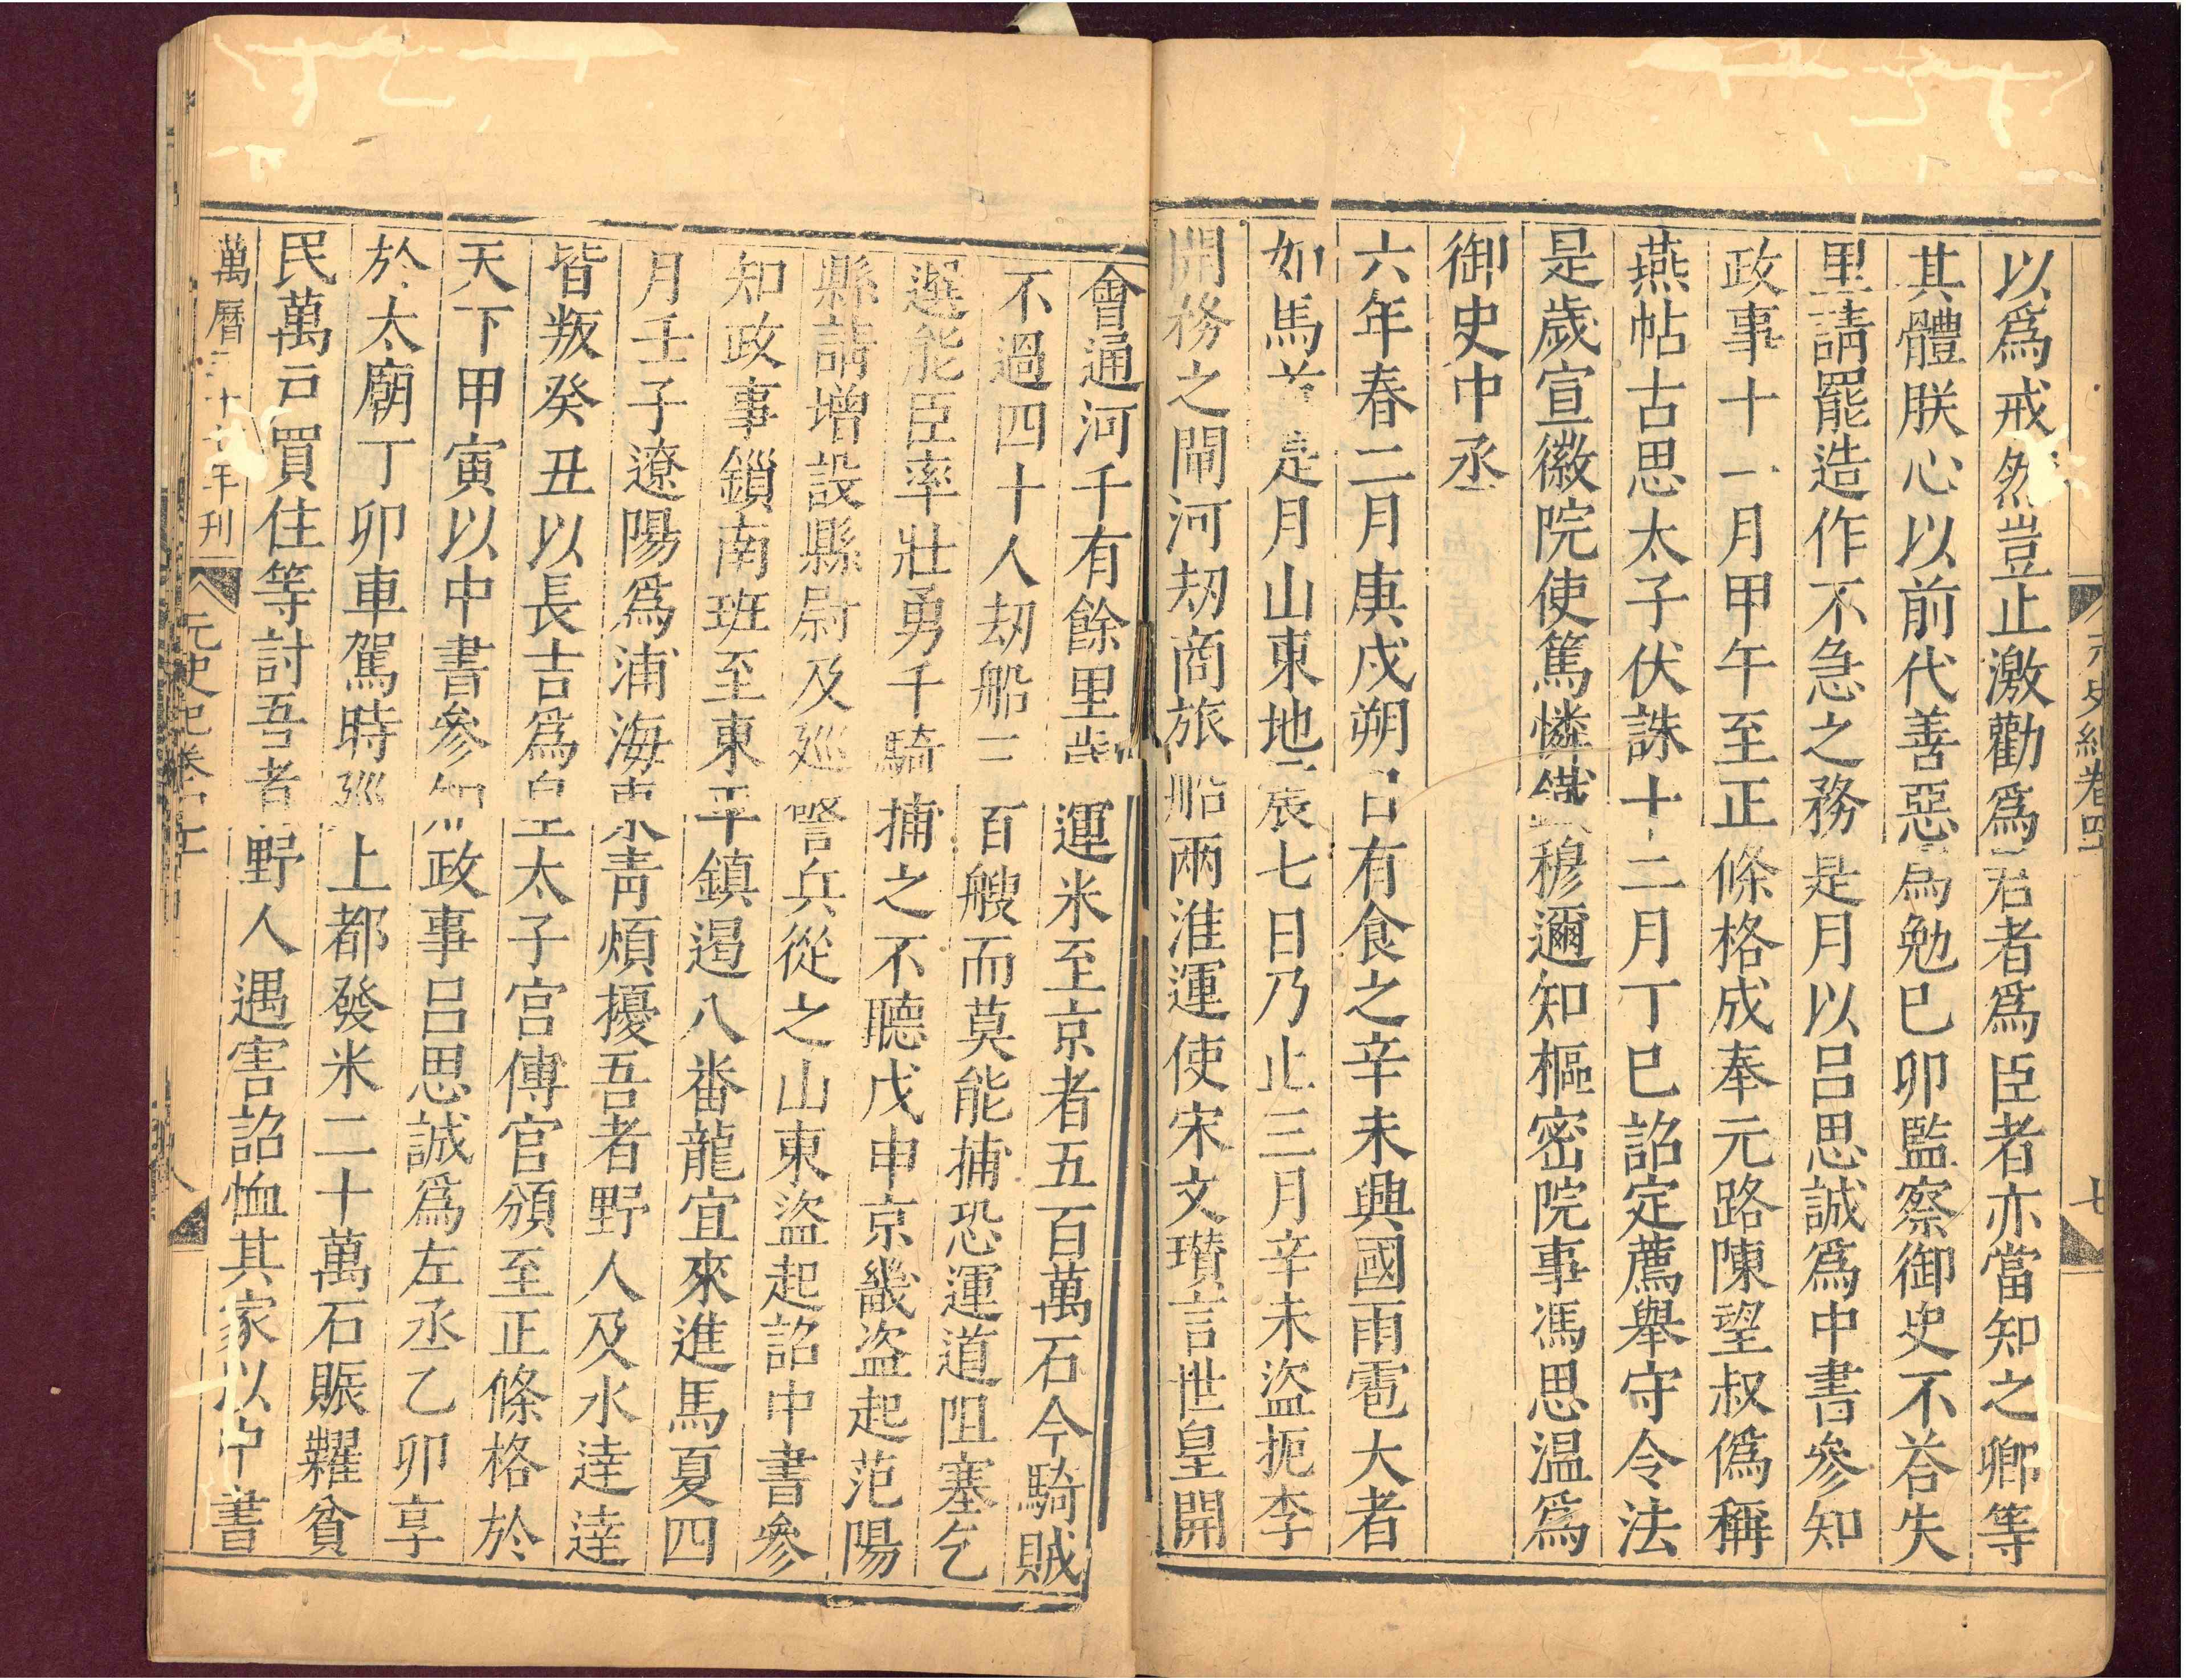 元史紀卷四
七
以爲戒然豈止激勸爲君者爲臣者亦當知之卿等
其體朕心以前代善惡爲勉巳卯監察御史不荅失
里請罷造作不急之務是月以吕思誠爲中書參知
政事十一月甲午至正條格成奉元路陳望叔僞稱
燕帖古思太子伏誅十二月丁巳詔定薦舉守令法
是歲宣徽院使篤憐鐵穆邇知樞密院事馮思温爲
御史中丞
六年春二月庚戍朔日有食之辛未興國雨雹大者
如馬首是月山東地震七日乃止三月辛未盜扼李
開務之閘河刼商旅船兩淮運使宋文瓚言世皇開
會通河千有餘里歲運米至京者五百萬石今騎賊
不過四十人刼船三百艘而莫能捕恐運道阻塞乞
選能臣率壯勇千騎捕之不聽戊申京畿盜起范陽
縣請增設縣尉及廵警兵從之山東盜起詔中書參
知政事鎻南班至東平鎮遏八番龍宜來進馬夏四
月壬子遼陽爲浦海東青煩擾吾者野人及水逹逹
皆叛癸丑以長吉爲皇太子宫傅官頒至正條格於
天下甲寅以中書參知政事吕思誠爲左丞乙卯享
於太廟丁卯車駕時廵上都發米二十萬石賑糶貧
民萬戸買住等討吾者野人遇害詔恤其家以中書
萬曆二十六年刊
元史紀卷四十
八